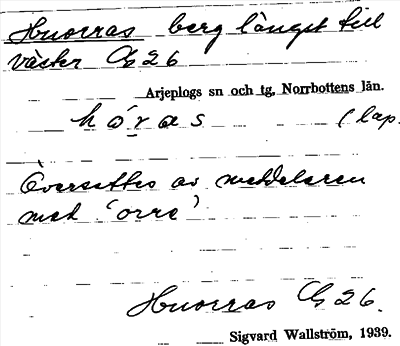 Huorras berg längst till
väster G 26
Arjeplogs sn och tg, Norrbottens län.
hó̱ras (lap.
Översättes av meddelaren
med 'orre'
Huorras G 26.
Sigvard Wallström, 1939.